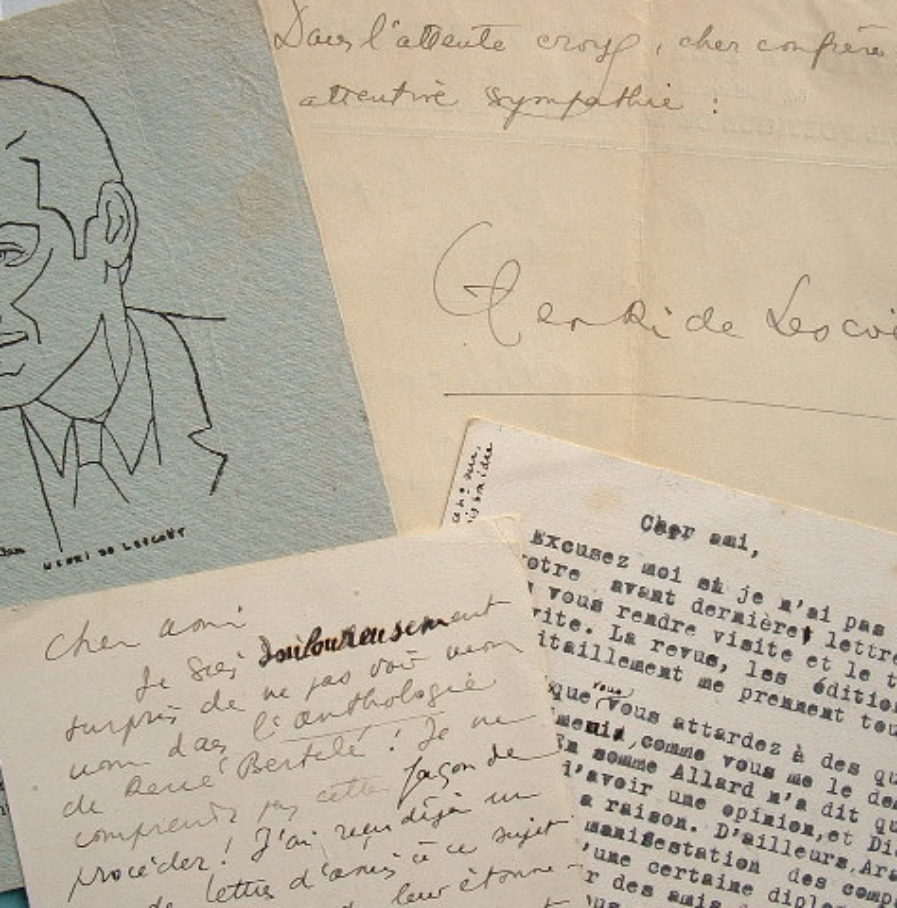 Dans l'attente croyez, cher confrère
attentive sympathie :
Henri de Lescoë
HENRI DE LESCOËT
Cher ami,
Excusez moi si je n'ai pas
otre avant dernière lettre
vous rendre visite et le t
vite. La revue, les édition
itaillement me prennent tou
que vous vous attardez à des qu
comme vous me le de
En somme Allard m'a dit qu
d'avoir une opinion, et Di
a raison. D'ailleurs, Ara
manifestation des comp
'une certaine diplo
r des amis
Cher ami
Je suis douloureusement
surpris de ne pas voir mon
nom dans l'anthologie
de René Bertelé ! Je ne
comprends pas cette façon de
procéder ! J'ai reçu déjà un
de lettres d'amis à ce sujet
leur étonne-